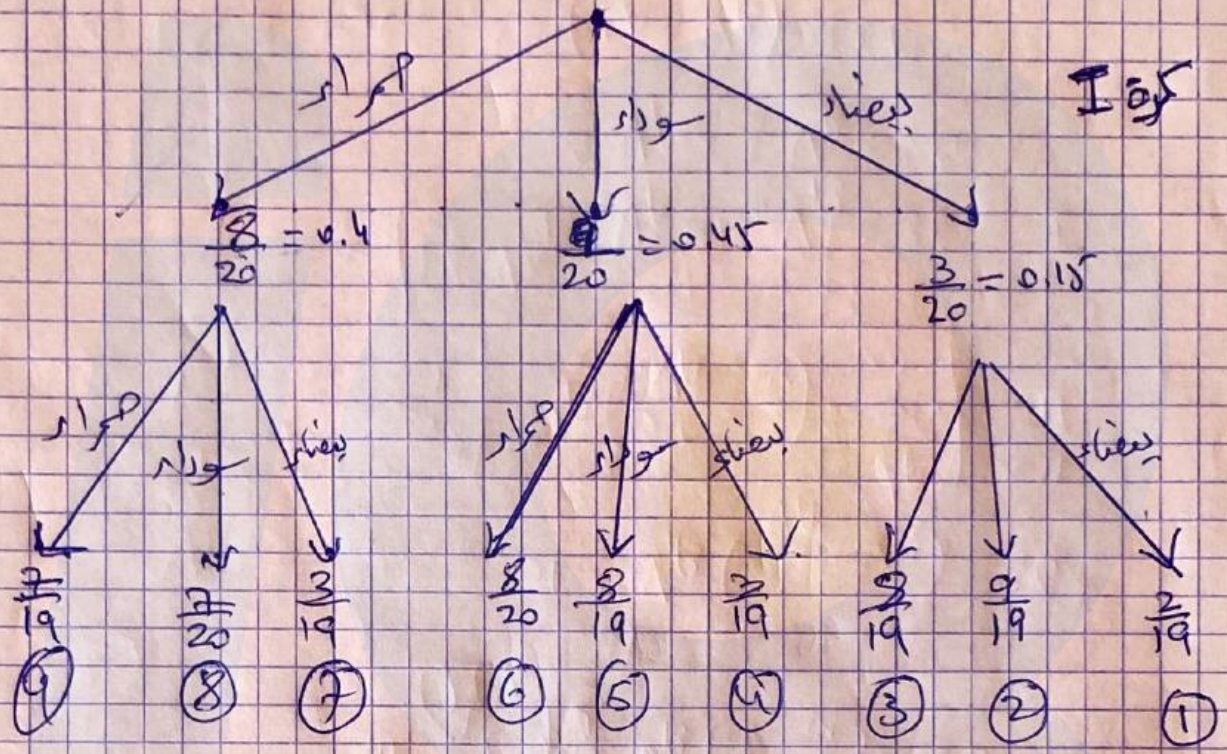 كرة I
حمراء سوداء بيضاء
8/20 = 0.4 9/20 = 0.45 3/20 = 0.15
حمراء سوداء بيضاء حمراء سوداء بيضاء بيضاء
7/19 7/20 3/19 8/20 8/19 3/19 8/19 9/19 2/19
9 8 7 6 5 4 3 2 1